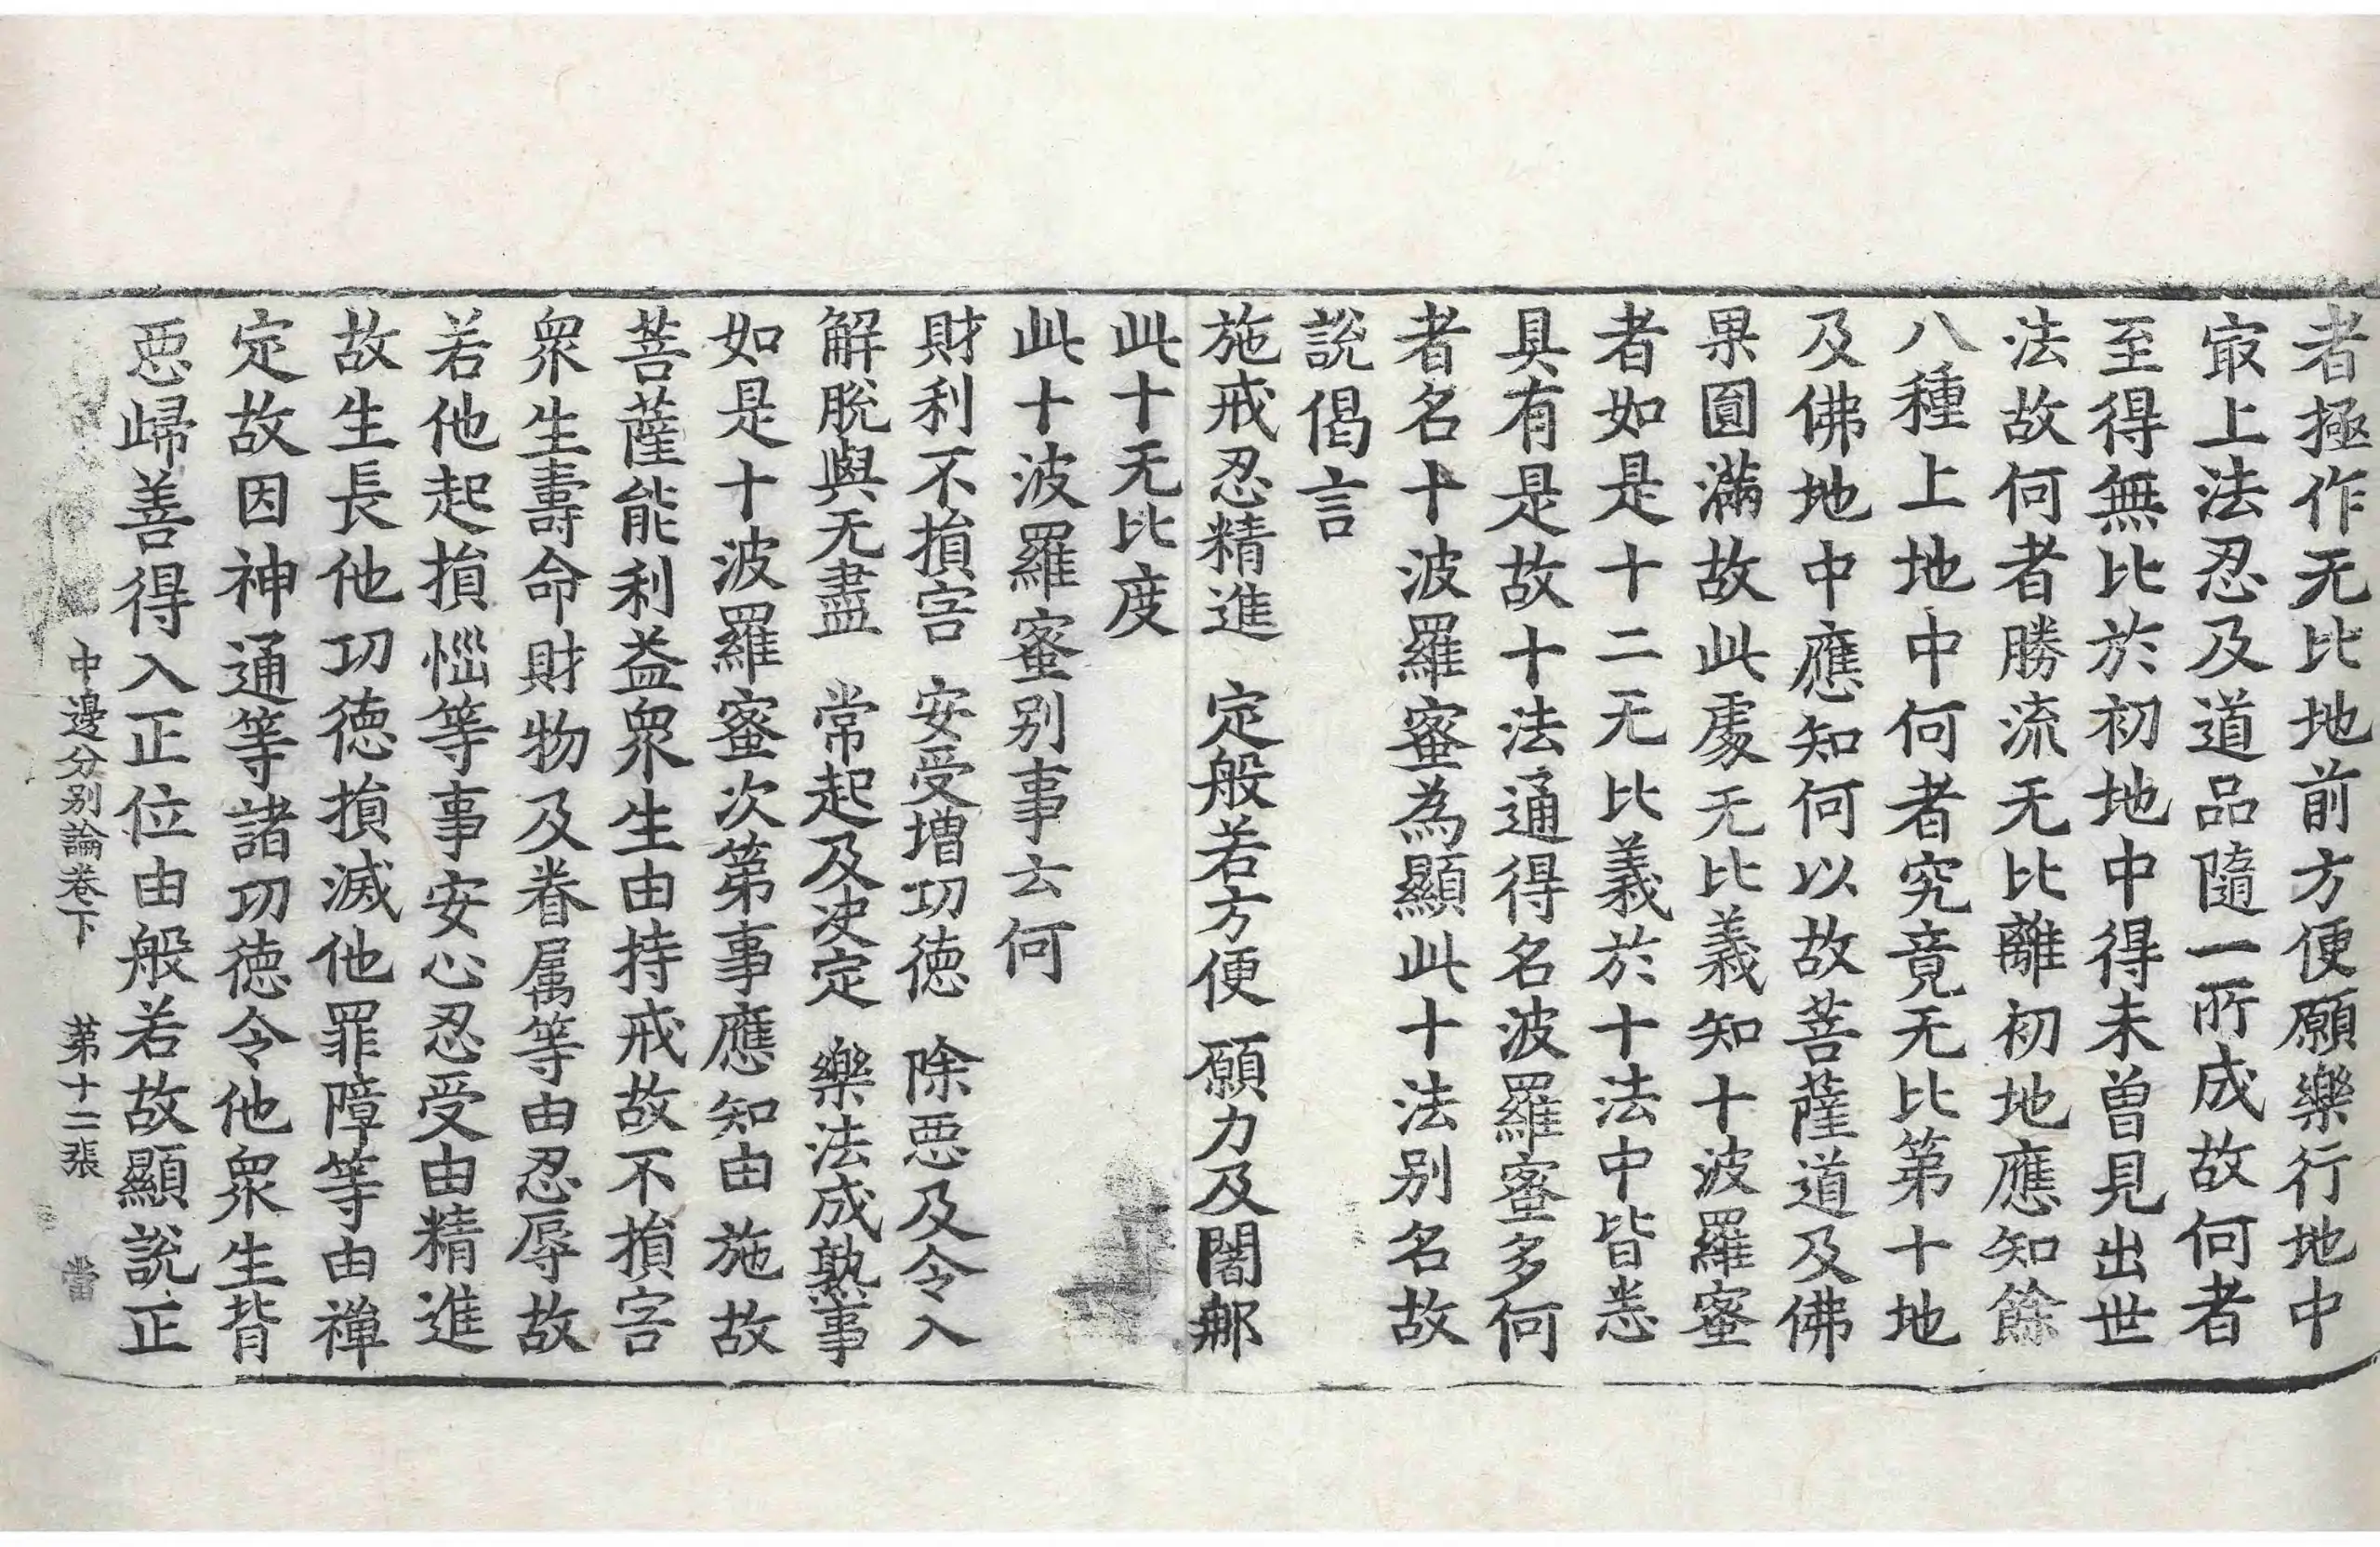 者極作无比地前方便願樂行地中
㝡上法忍及道品隨一所成故何者
至得無比於初地中得未曽見出世
法故何者勝流无比離初地應知餘
八種上地中何者究竟无比第十地
及佛地中應知何以故菩薩道及佛
果圎滿故此處无比義知十波羅蜜
者如是十二无比義於十法中皆悉
具有是故十法通得名波羅蜜多何
者名十波羅蜜為顯此十法别名故
說偈言
施戒忍精進　定般若方便　願力及闍䣯
此十无比度
此十波羅蜜别事云何
財利不損害　安受増功德　除惡及令入
解脫與无盡　常起及决定　樂法成熟事
如是十波羅蜜次第事應知由施故
菩薩能利益衆生由持戒故不損害
衆生壽命財物及眷属等由忍辱故
若他起損惱等事安心忍受由精進
故生長他功德損滅他罪障等由禪
定故因神通等諸功德令他衆生背
惡歸善得入正位由般若故顯說正
中邊分别論卷下　第十二張　當